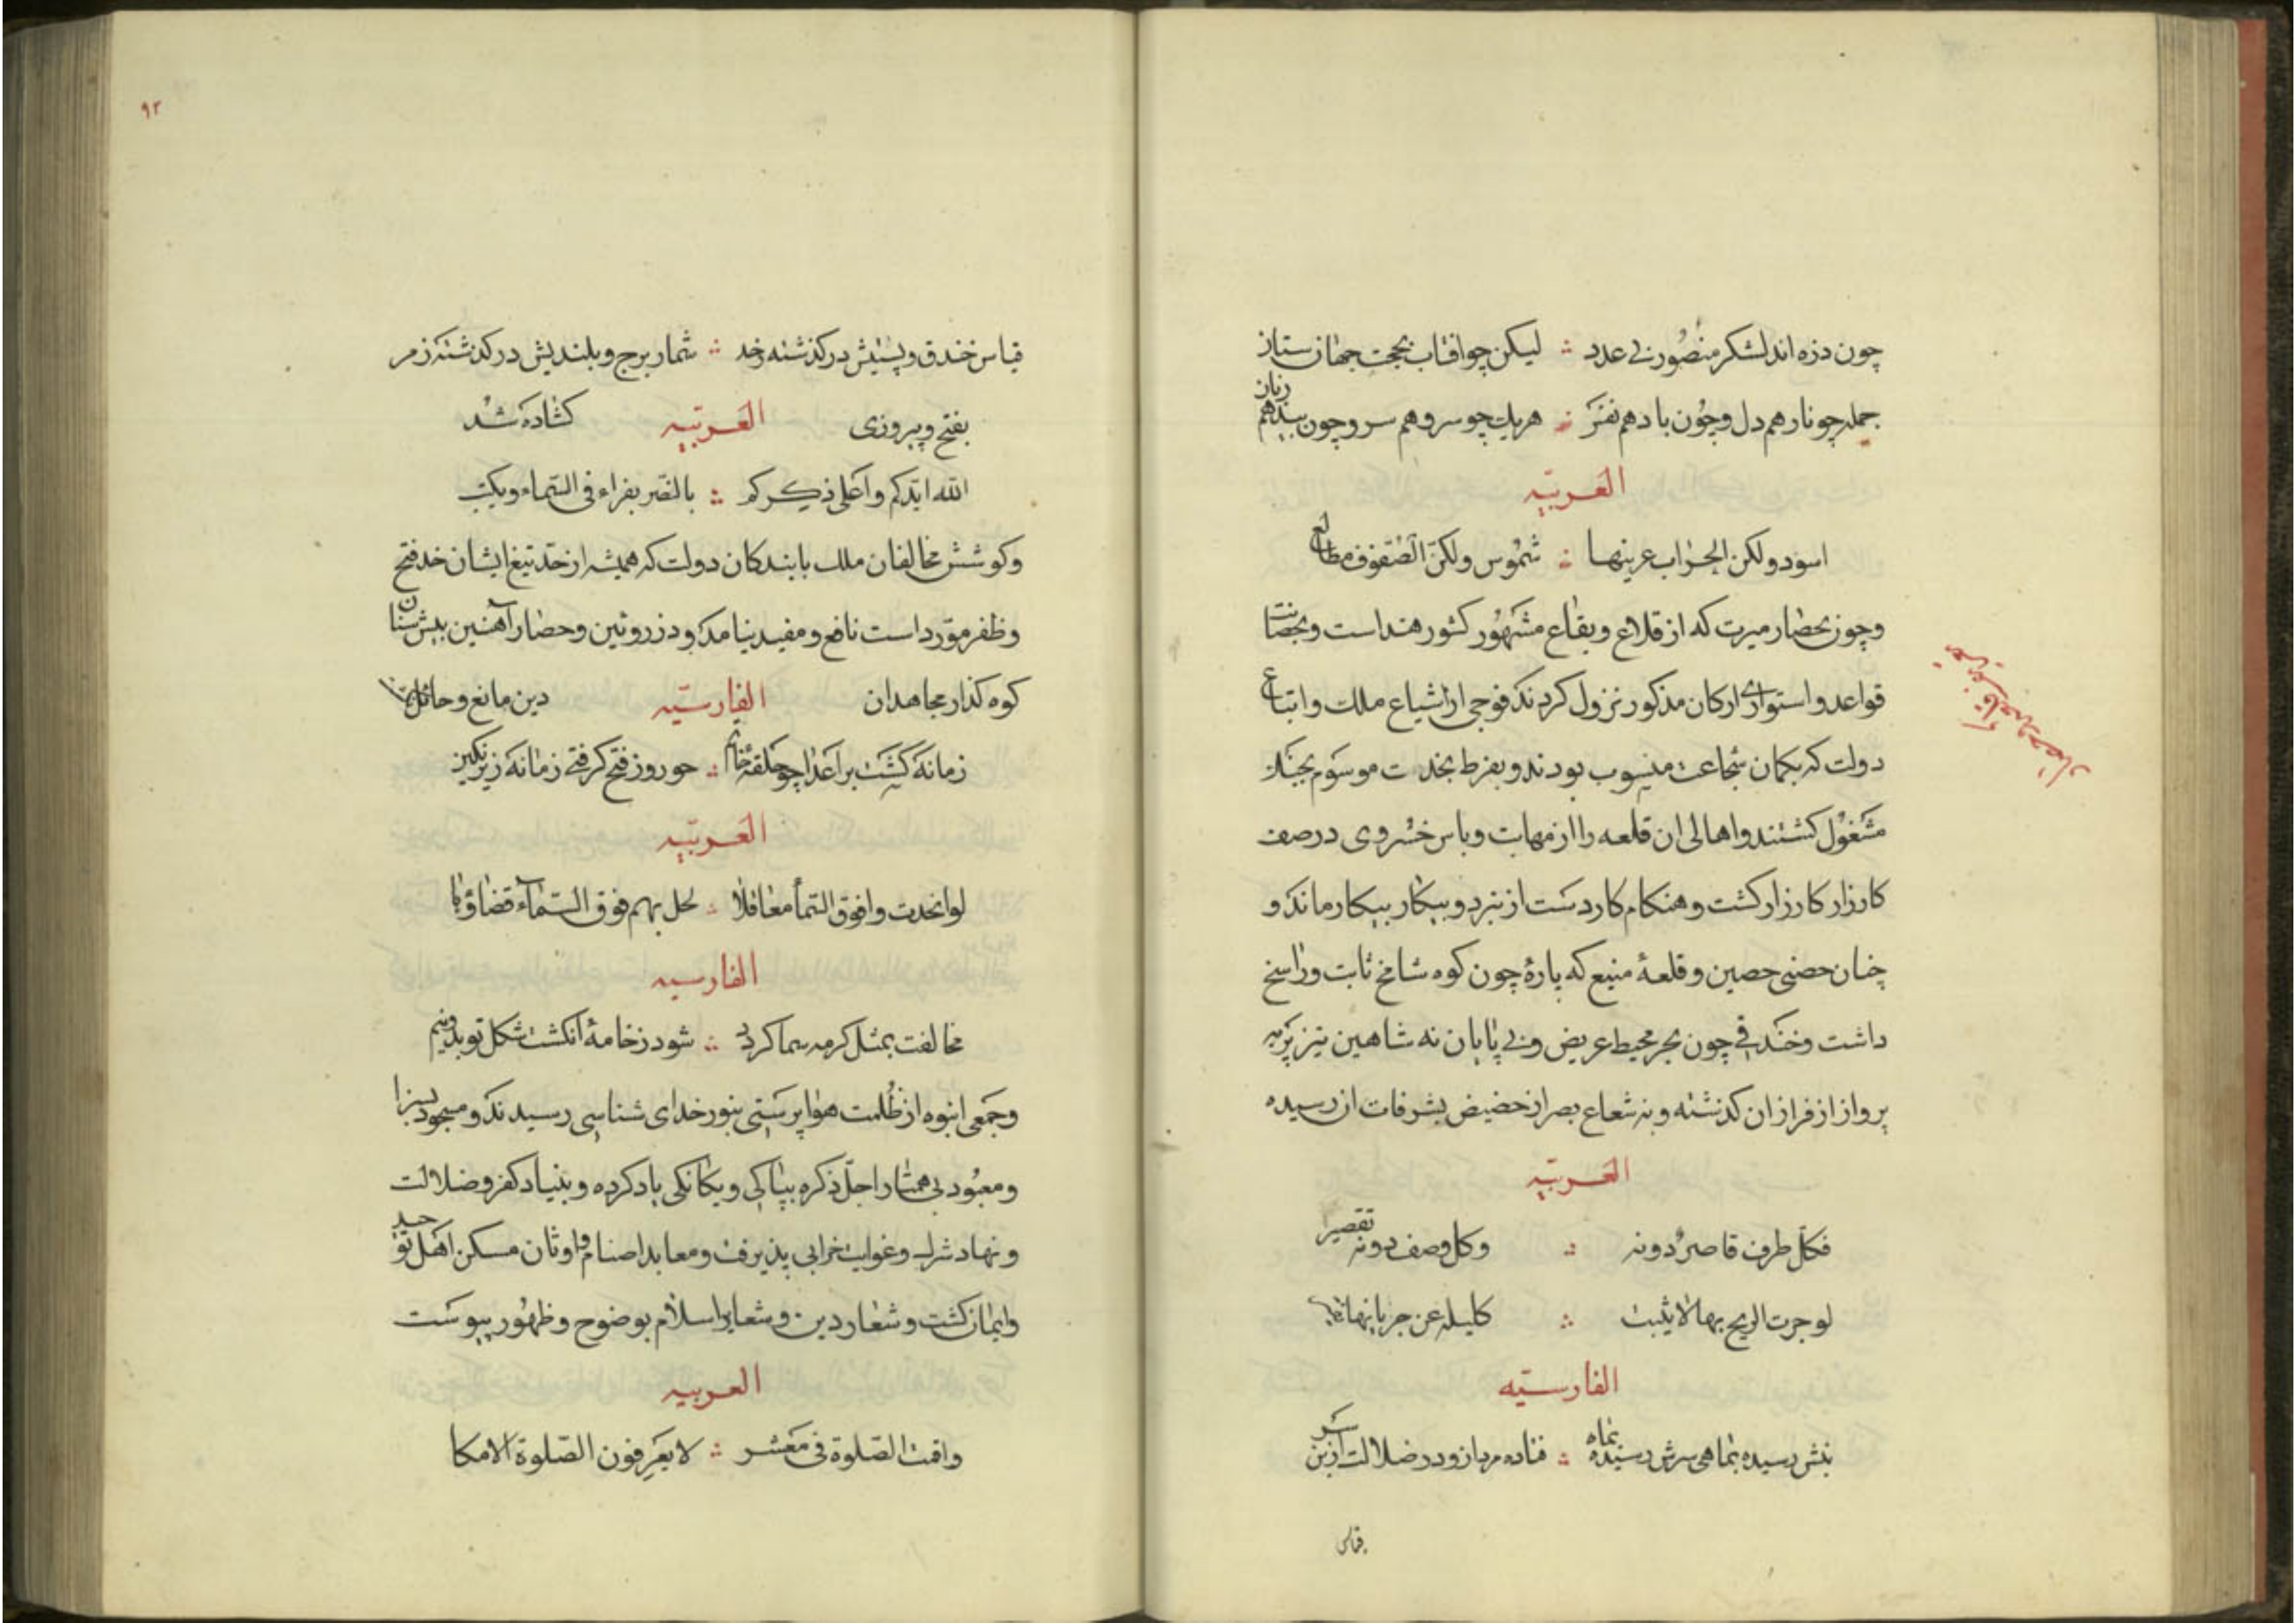 چون ذره اند لشکر منصور بی عدد ∴ لیکن چو افتاب بحجت جهان ستان
جمله چو نار هم دل و چون باد هم نفس ∴ هریک چو سرو هم سر و چون بید هم زبان
العربیه
اسود ولکن الحراب عرینها ∴ شموس ولکن الصفوف مطالع
و چون بحصار میرت که از قلاع و بقاع مشهور کشور هند است و بحصانت
قواعد و استواری ارکان مذکور نزول کردند فوجی از اشیاع ملک و اتباع
دولت که بکمان شجاعت منسوب بودند و بفرط نجدت موسوم بجنک
مشغول کشتند و اهالی ان قلعه را از مهابت و باس خسروی در صف
کارزار کار زار کشت و هنکام کار دست از نبرد و بیکار بیکار ماند و
چنان حصنی حصین و قلعهٔ منیع که بارهٔ چون کوه شامخ ثابت و راسخ
داشت و خندقی چون بحر محیط عریض و بی پایان نه شاهین تیز پر به
پرواز از فراز ان کذشته و نه شعاع بصر از حضیض بشرفات ان رسیده
العربیه
فکل طرف قاصر دونه ∴ وکل وصف دونه تقصیر
لو جرت الریح بها لا یثبت ∴ کلیله عن جریانها
الفارسیه
بنش رسیده بماهی سرش رسیده بماه ∴ فتاده مردان ودر ضلالت ازین
قیاس
۹۲
قیاس خندق و پستیش در کذشته زحد ∴ شمار برج و بلندیش در کذشته زمر
بفتح و پیروزی العربیه کشاده شد
الله ایدکم و اعلی ذکرکم ∴ بالنصر یقراء فی السماء ویکتب
و کوشش مخالفان ملک با بندکان دولت که همیشه از حد تیغ ایشان خد فتح
و ظفر مورد است نافع و مفید نیامد و دز روئین و حصار آهنین پیش سنان
کوه کذار مجاهدان الفارسیه دین مانع و حائل
زمانه کشت بر اعدا چو حلقهٔ خاتم ∴ چو روز فتح کرفتی زمانه زیر نکین
العربیه
لو اتخذت وا فوق السماء معاقلا ∴ لحل بهم فوق السماء قضاؤها
الفارسیه
مخالفت بمثل کر مه سما کردد ∴ شود زخامهٔ انکشت شکل تو بدونیم
و جمعی انبوه از ظلمت هوا پرستی بنور خدای شناسی رسیدند و مسجود بسزا
و معبود بی همتا را جل ذکره بپاکی و یکانکی یاد کرده و بنیاد کفر و ضلالت
و نهاد شرک و غوایت خرابی پذیرفت و معابد اصنام و اوثان مسکن اهل توحید
و ایمان کشت و شعار دین و شعایر اسلام بوضوح و ظهور پیوست
العربیه
واقمت الصلوة فی معشر ∴ لا یعرفون الصلوة الا مکا